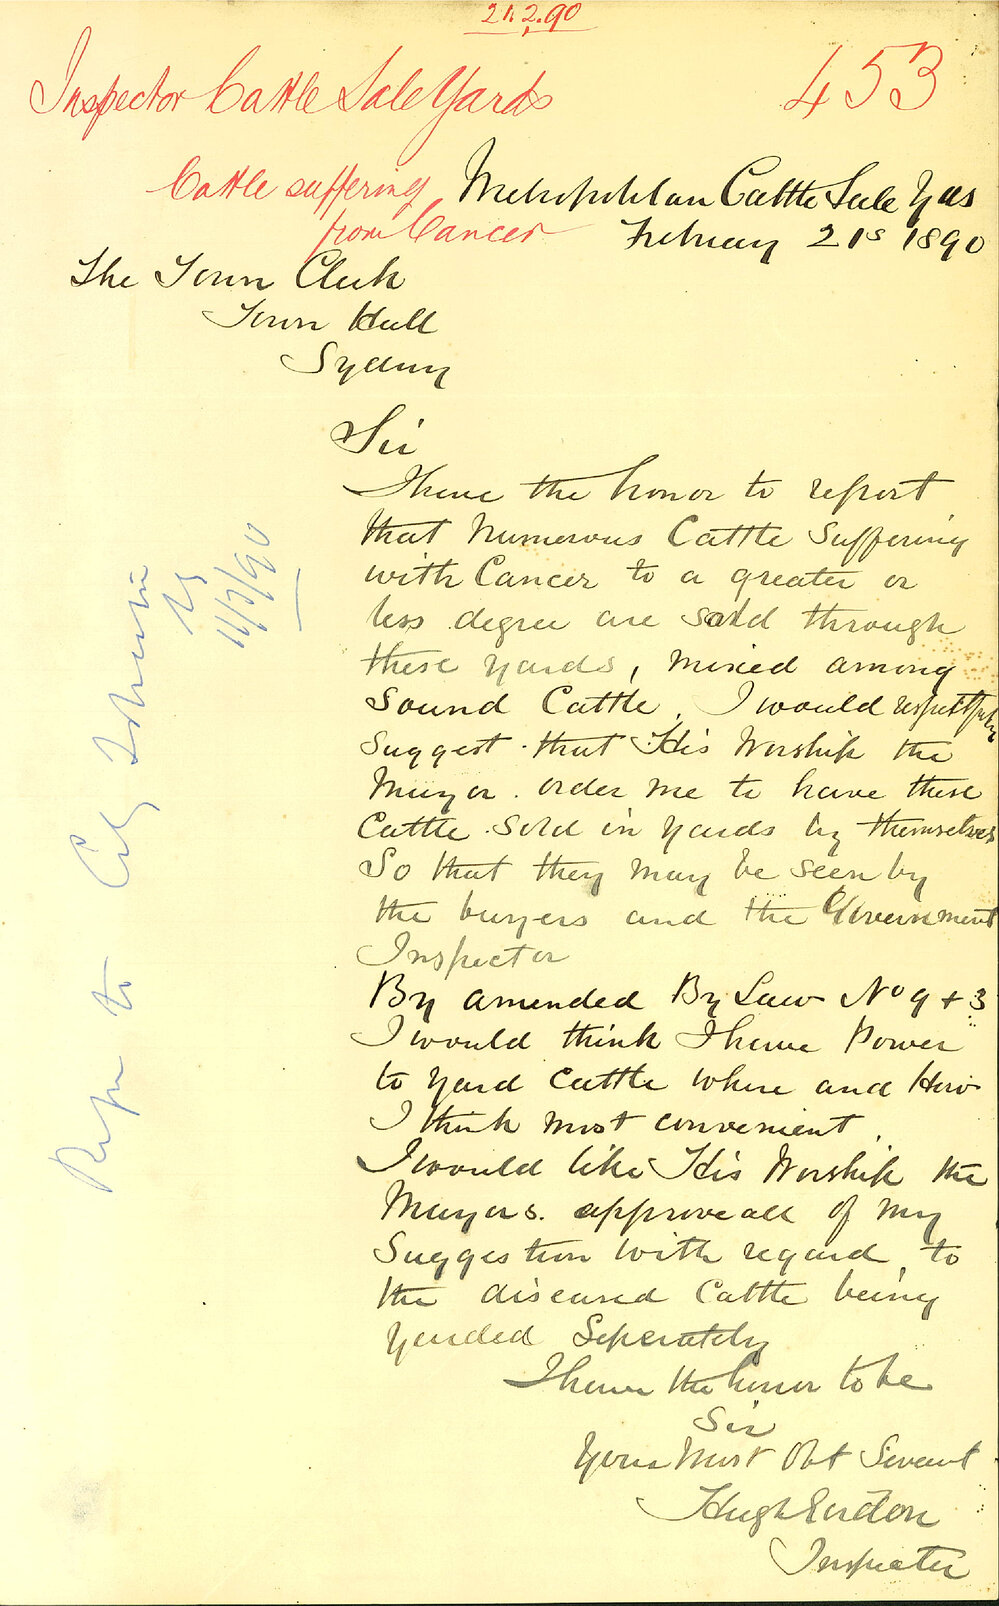 21.2.90
Inspector Cattle Sale Yards
453
Cattle suffering
from Cancer
Metropolitan Cattle Sale Yds
February 21s 1890
The Town Clerk
Town Hall
Sydney
Sir
I have the honor to report
that numerous Cattle Suffering
with Cancer to a greater or
less degree are sold through
these yards, mixed among
Sound Cattle, I would respectfuly
Suggest that His Worship the
Mayor order me to have these
Cattle Sold in yards by themselves
So that they may be seen by
the buyers and the Government
Inspector
By amended By Law No 9 + 3
I would think I have Power
to yard Cattle where and How
I think most convenient.
I would like His Worship the
Mayors. approveall of my
Suggestion with regard to
the diseased Cattle being
yarded Seperately
I have the honor to be
Sir
Your Most Obt Servant
Hugh Gordon
Inspector
Refer to City
11/3/90